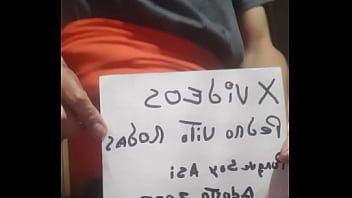 X VidEOS
Pedro Vito Rodas
Porque Soy Asi